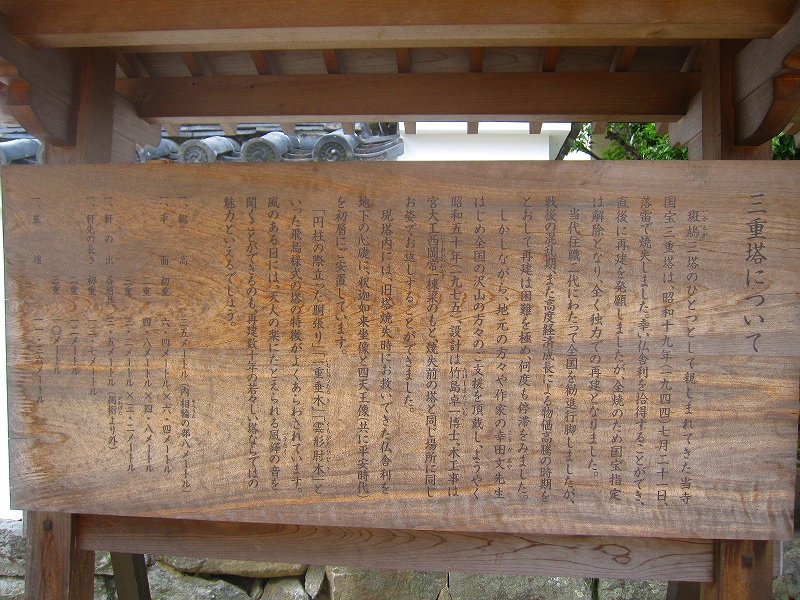 三重塔について
斑鳩三塔のひとつとして親しまれてきた当寺
国宝三重塔は、昭和十九年(一九四四)七月二十一日、
落雷で焼失しました。幸い仏舎利を拾得することができ、
直後に再建を発願しましたが、全焼のため国宝指定
は解除となり、全く独力での再建となりました。
当代住職二代にわたって全国を勧進行脚しましたが、
戦後の混乱期、また高度経済成長による物価高騰の時期を
とおして再建は困難を極め、何度も停滞をみました。
しかしながら、地元の方々や作家の幸田文先生
はじめ全国の沢山の方々のご支援を頂戴し、ようやく
昭和五十年(一九七五)、設計は竹島卓一博士、木工事は
宮大工西岡常一棟梁のもと、焼失前の塔と同じ場所に同じ
お姿でお返しすることができました。
現塔内には、旧塔焼失時にお救いできた仏舎利を
地下の心礎に、釈迦如来坐像と四天王像(共に平安時代)
を初層にご安置しています。
「円柱の際立った胴張り」「一重垂木」「雲形肘木」と
いった飛鳥様式の塔の特徴がよくあらわされています。
風のある日には、天人の楽にたとえられる風鐸の音を
聞くことができるのも、再建数十年の若々しい塔ならではの
魅力といえるでしょう。
一、総高
一、平面 初重 六・四メートル×六・四メートル
二重 四・八メートル×四・八メートル
三重 三・二メートル×三・二メートル
一、軒の出 各層共
一、軒先の長さ 初重
二重
三重
一、基壇